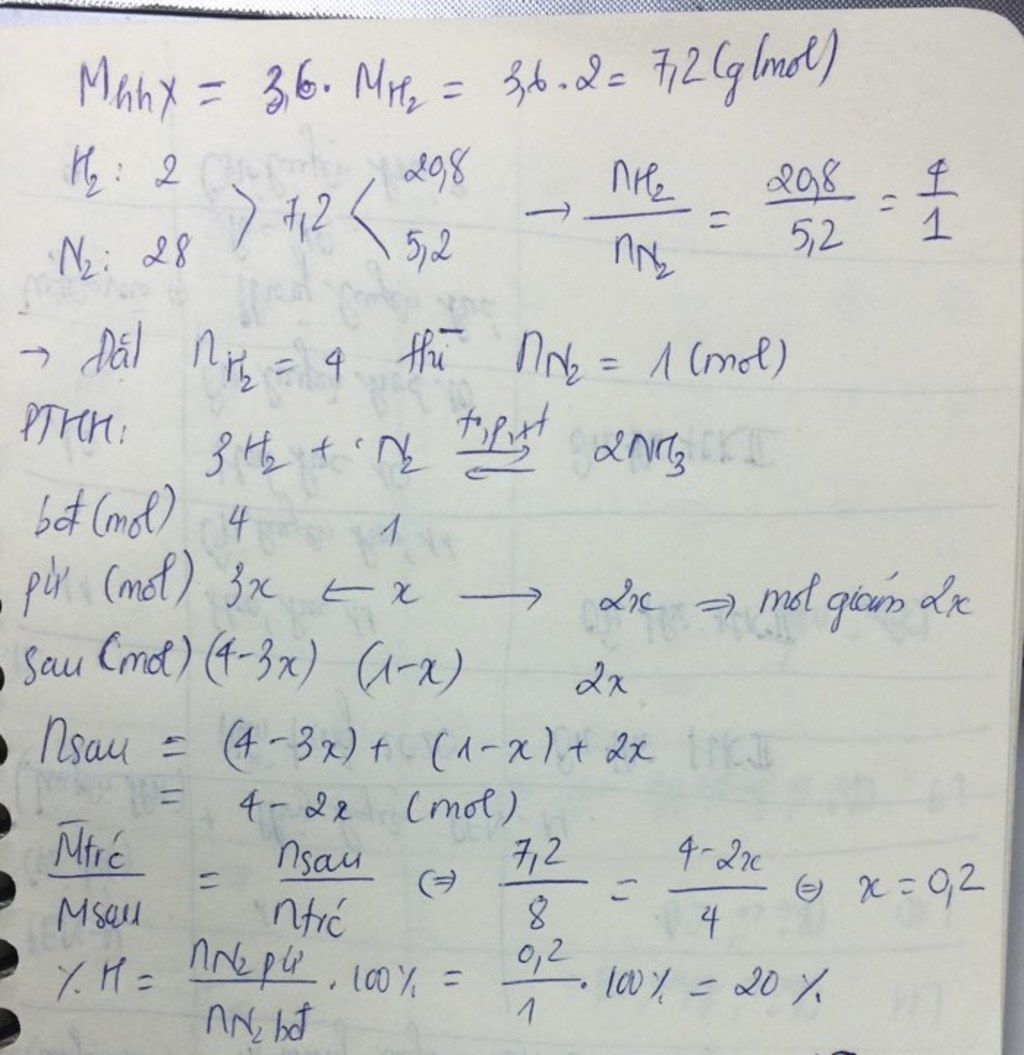 M̅hhX = 3,6. MH₂ = 3,6.2 = 7,2 (g/mol)
H₂: 2 20,8
7,2 → nH₂/nN₂ = 20,8/5,2 = 4/1
N₂: 28 5,2
→ Đặt nH₂ = 4 thì nN₂ = 1 (mol)
PTHH: 3H₂ + N₂ ⇌ 2NH₃ (t°,p,xt)
bđ (mol) 4 1
pứ (mol) 3x ← x → 2x ⇒ mol giảm 2x
sau (mol) (4-3x) (1-x) 2x
nsau = (4-3x) + (1-x) + 2x
= 4-2x (mol)
M̅trc/Msau = nsau/ntrc ⇔ 7,2/8 = 4-2x/4 ⇔ x = 0,2
% H = nN₂ pứ/nN₂ bđ . 100% = 0,2/1 . 100% = 20 %